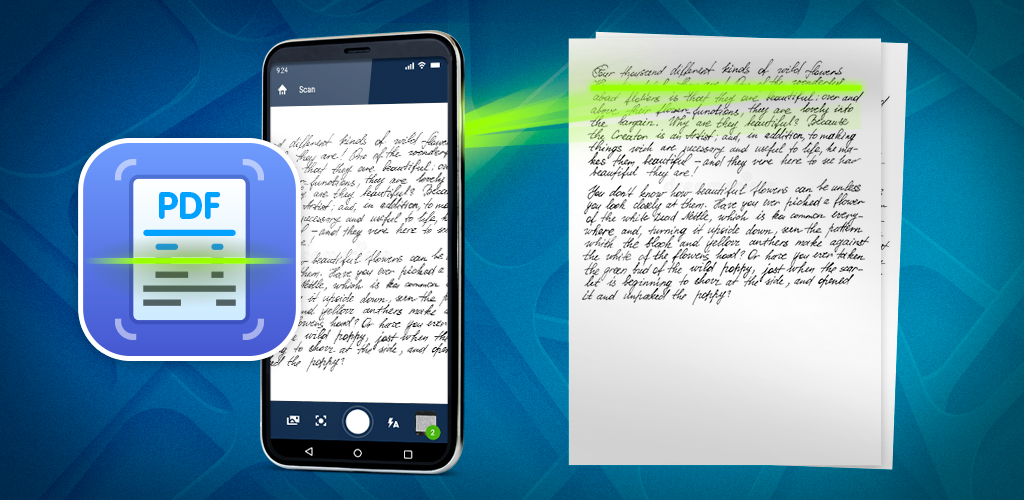 PDF
9:24
Scan
different kinds of wild
they are! One of the
that they are beautiful;
functions, they are lovely
are they beautiful?
and, in addition, to
necessary and useful to life,
– and they were here to
beautiful flowers can be
them. Have you ever picked a
Nettle, which is common
it upside down, seen the
yellow anthers make
hood? Or have you ever
wild poppy, just when
to show at the side, and
the poppy?
2
Four thousand different kinds of wild flowers
about flowers is that they are beautiful; over and
above their flower-functions, they are lovely into
the bargain. Why are they beautiful? Because
the Creator is an Artist; and, in addition, to making
things wich are necessary and useful to life, he ma-
kes them beautiful – and they were here to see how
beautiful they are!
You don't know how beautiful flowers can be unless
you look closely at them. Have you ever picked a flower
of the white Dead Nettle, which is common every-
where and, turning it upside down, seen the pattern
which the black and yellow anthers make against
the white of the flowers hood? Or have you ever taken
the green bud of the wild poppy, just when the scar-
let is beginning to show at the side, and opened
it and unpacked the poppy?